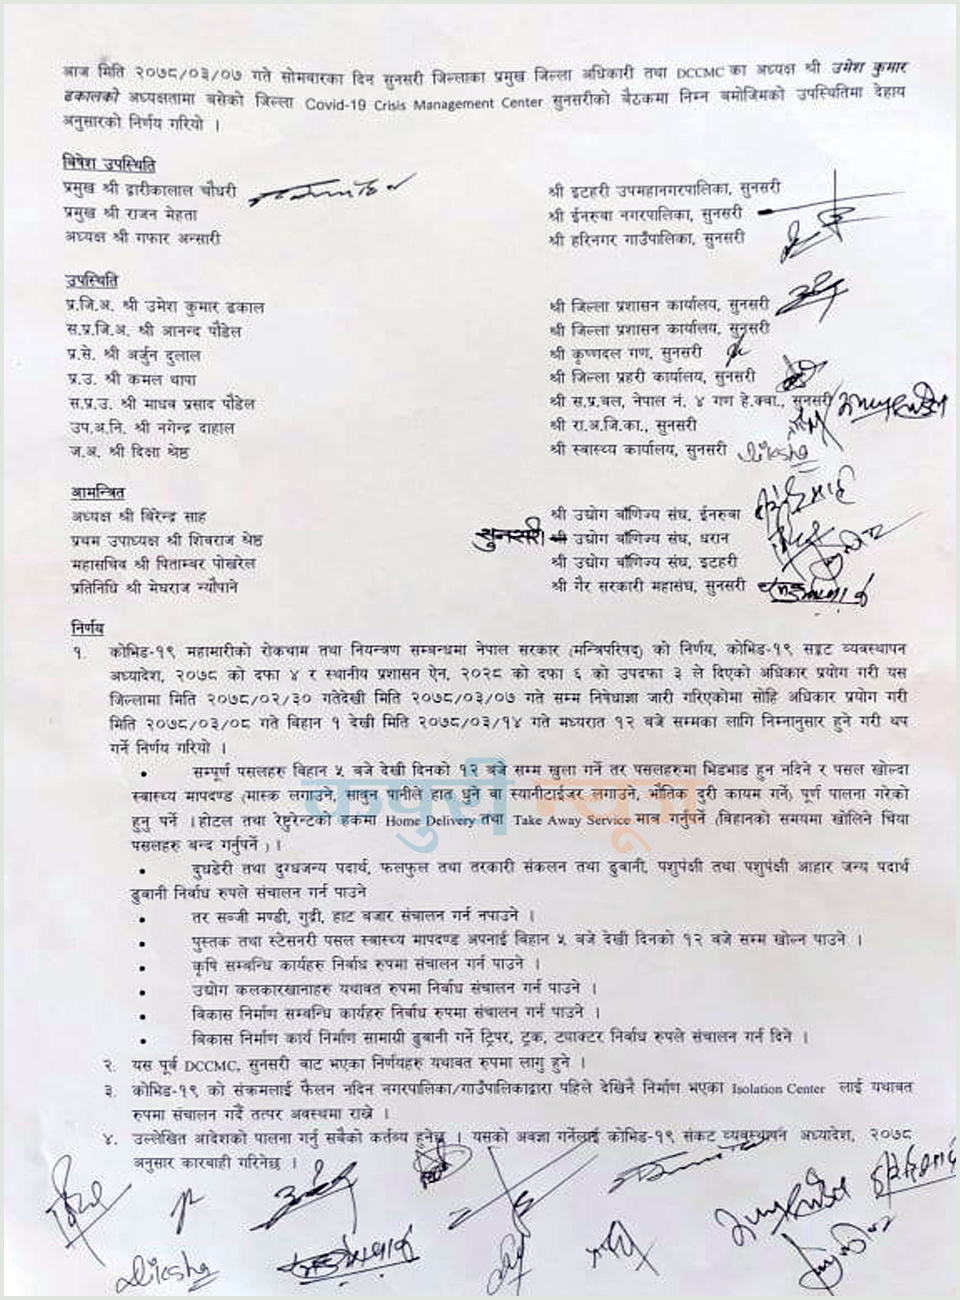 आज मिति २०७८/०३/०७ गते सोमबारका दिन सुनसरी जिल्लाका प्रमुख जिल्ला अधिकारी तथा DCCMC का अध्यक्ष श्री उमेश कुमार
ढकालको अध्यक्षतामा बसेको जिल्ला Covid-19 Crisis Management Center सुनसरीको बैठकमा निम्न बमोजिमको उपस्थितिमा देहाय
अनुसारको निर्णय गरियो ।
विषेश उपस्थिति
प्रमुख श्री द्वारीकालाल चौधरी श्री इटहरी उपमहानगरपालिका, सुनसरी
प्रमुख श्री राजन मेहता श्री ईनरुवा नगरपालिका, सुनसरी
अध्यक्ष श्री गफार अन्सारी श्री हरिनगर गाउँपालिका, सुनसरी
उपस्थिति
प्र.जि.अ. श्री उमेश कुमार ढकाल श्री जिल्ला प्रशासन कार्यालय, सुनसरी
स.प्र.जि.अ. श्री आनन्द पौडेल श्री जिल्ला प्रशासन कार्यालय, सुनसरी
प्र.से. श्री अर्जुन दुलाल श्री कृष्णदल गण, सुनसरी
प्र.उ. श्री कमल थापा श्री जिल्ला प्रहरी कार्यालय, सुनसरी
स.प्र.उ. श्री माधव प्रसाद पौडेल श्री स.प्र.बल, नेपाल नं. ४ गण हे.क्वा., सुनसरी
उप.अ.नि. श्री नगेन्द्र दाहाल श्री रा.अ.जि.का., सुनसरी
ज.अ. श्री दिक्षा श्रेष्ठ श्री स्वास्थ्य कार्यालय, सुनसरी Diksha
आमन्त्रित
अध्यक्ष श्री बिरेन्द्र साह श्री उद्योग बाँणिज्य संघ, ईनरुवा
प्रथम उपाध्यक्ष श्री शिवराज श्रेष्ठ सुनसरी श्री उद्योग बाँणिज्य संघ, धरान
महासचिव श्री पिताम्बर पोखरेल श्री उद्योग बाँणिज्य संघ, इटहरी
प्रतिनिधि श्री मेघराज न्यौपाने श्री गैर सरकारी महासंघ, सुनसरी
निर्णय
१. कोभिड-१९ महामारीको रोकथाम तथा नियन्त्रण सम्बन्धमा नेपाल सरकार (मन्त्रिपरिषद्) को निर्णय, कोभिड-१९ सङ्कट व्यवस्थापन
अध्यादेश, २०७८ को दफा ४ र स्थानीय प्रशासन ऐन, २०२८ को दफा ६ को उपदफा ३ ले दिएको अधिकार प्रयोग गरी यस
जिल्लामा मिति २०७८/०२/३० गतेदेखी मिति २०७८/०३/०७ गते सम्म निषेधाज्ञा जारी गरिएकोमा सोहि अधिकार प्रयोग गरी
मिति २०७८/०३/०८ गते विहान १ देखी मिति २०७८/०३/१४ गते मध्यरात १२ बजे सम्मका लागि निम्नानुसार हुने गरी थप
गर्ने निर्णय गरियो ।
• सम्पूर्ण पसलहरु बिहान ५ बजे देखी दिनको १२ बजे सम्म खुला गर्ने तर पसलहरुमा भिडभाड हुन नदिने र पसल खोल्दा
स्वास्थ्य मापदण्ड (मास्क लगाउने, साबुन पानीले हात धुने वा स्यानीटाईजर लगाउने, भौतिक दुरी कायम गर्ने) पूर्ण पालना गरेको
हुनु पर्ने । होटल तथा रेष्टुरेन्टको हकमा Home Delivery तथा Take Away Service मात्र गर्नुपर्ने (बिहानको समयमा खोलिने चिया
पसलहरु बन्द गर्नुपर्ने ) ।
• दुधडेरी तथा दुग्धजन्य पदार्थ, फलफुल तथा तरकारी संकलन तथा ढुवानी, पशुपंक्षी तथा पशुपंक्षी आहार जन्य पदार्थ
ढुवानी निर्वाध रुपले संचालन गर्न पाउने
• तर सब्जी मण्डी, गुद्री, हाट बजार संचालन गर्न नपाउने ।
• पुस्तक तथा स्टेसनरी पसल स्वास्थ्य मापदण्ड अपनाई बिहान ५ बजे देखी दिनको १२ बजे सम्म खोल्न पाउने ।
• कृषि सम्बन्धि कार्यहरु निर्वाध रुपमा संचालन गर्न पाउने ।
• उद्योग कलकारखानाहरु यथावत रुपमा निर्वाध संचालन गर्न पाउने ।
• विकास निर्माण सम्बन्धि कार्यहरु निर्वाध रुपमा संचालन गर्न पाउने ।
• विकास निर्माण कार्य निर्माण सामाग्री ढुवानी गर्ने ट्रिपर, ट्रक, ट्याक्टर निर्वाध रुपले संचालन गर्न दिने ।
२. यस पूर्व DCCMC, सुनसरी बाट भएका निर्णयहरु यथावत रुपमा लागु हुने ।
३. कोभिड-१९ को संक्रमलाई फैलन नदिन नगरपालिका/गाउँपालिकाद्वारा पहिले देखिनै निर्माण भएका Isolation Center लाई यथावत
रुपमा संचालन गर्दै तत्पर अवस्थमा राख्ने ।
४. उल्लेखित आदेशको पालना गर्नु सबैको कर्तव्य हुनेछ । यसको अवज्ञा गर्नेलाई कोभिड-१९ संकट व्यवस्थापन अध्यादेश, २०७८
अनुसार कारबाही गरिनेछ ।
Diksha